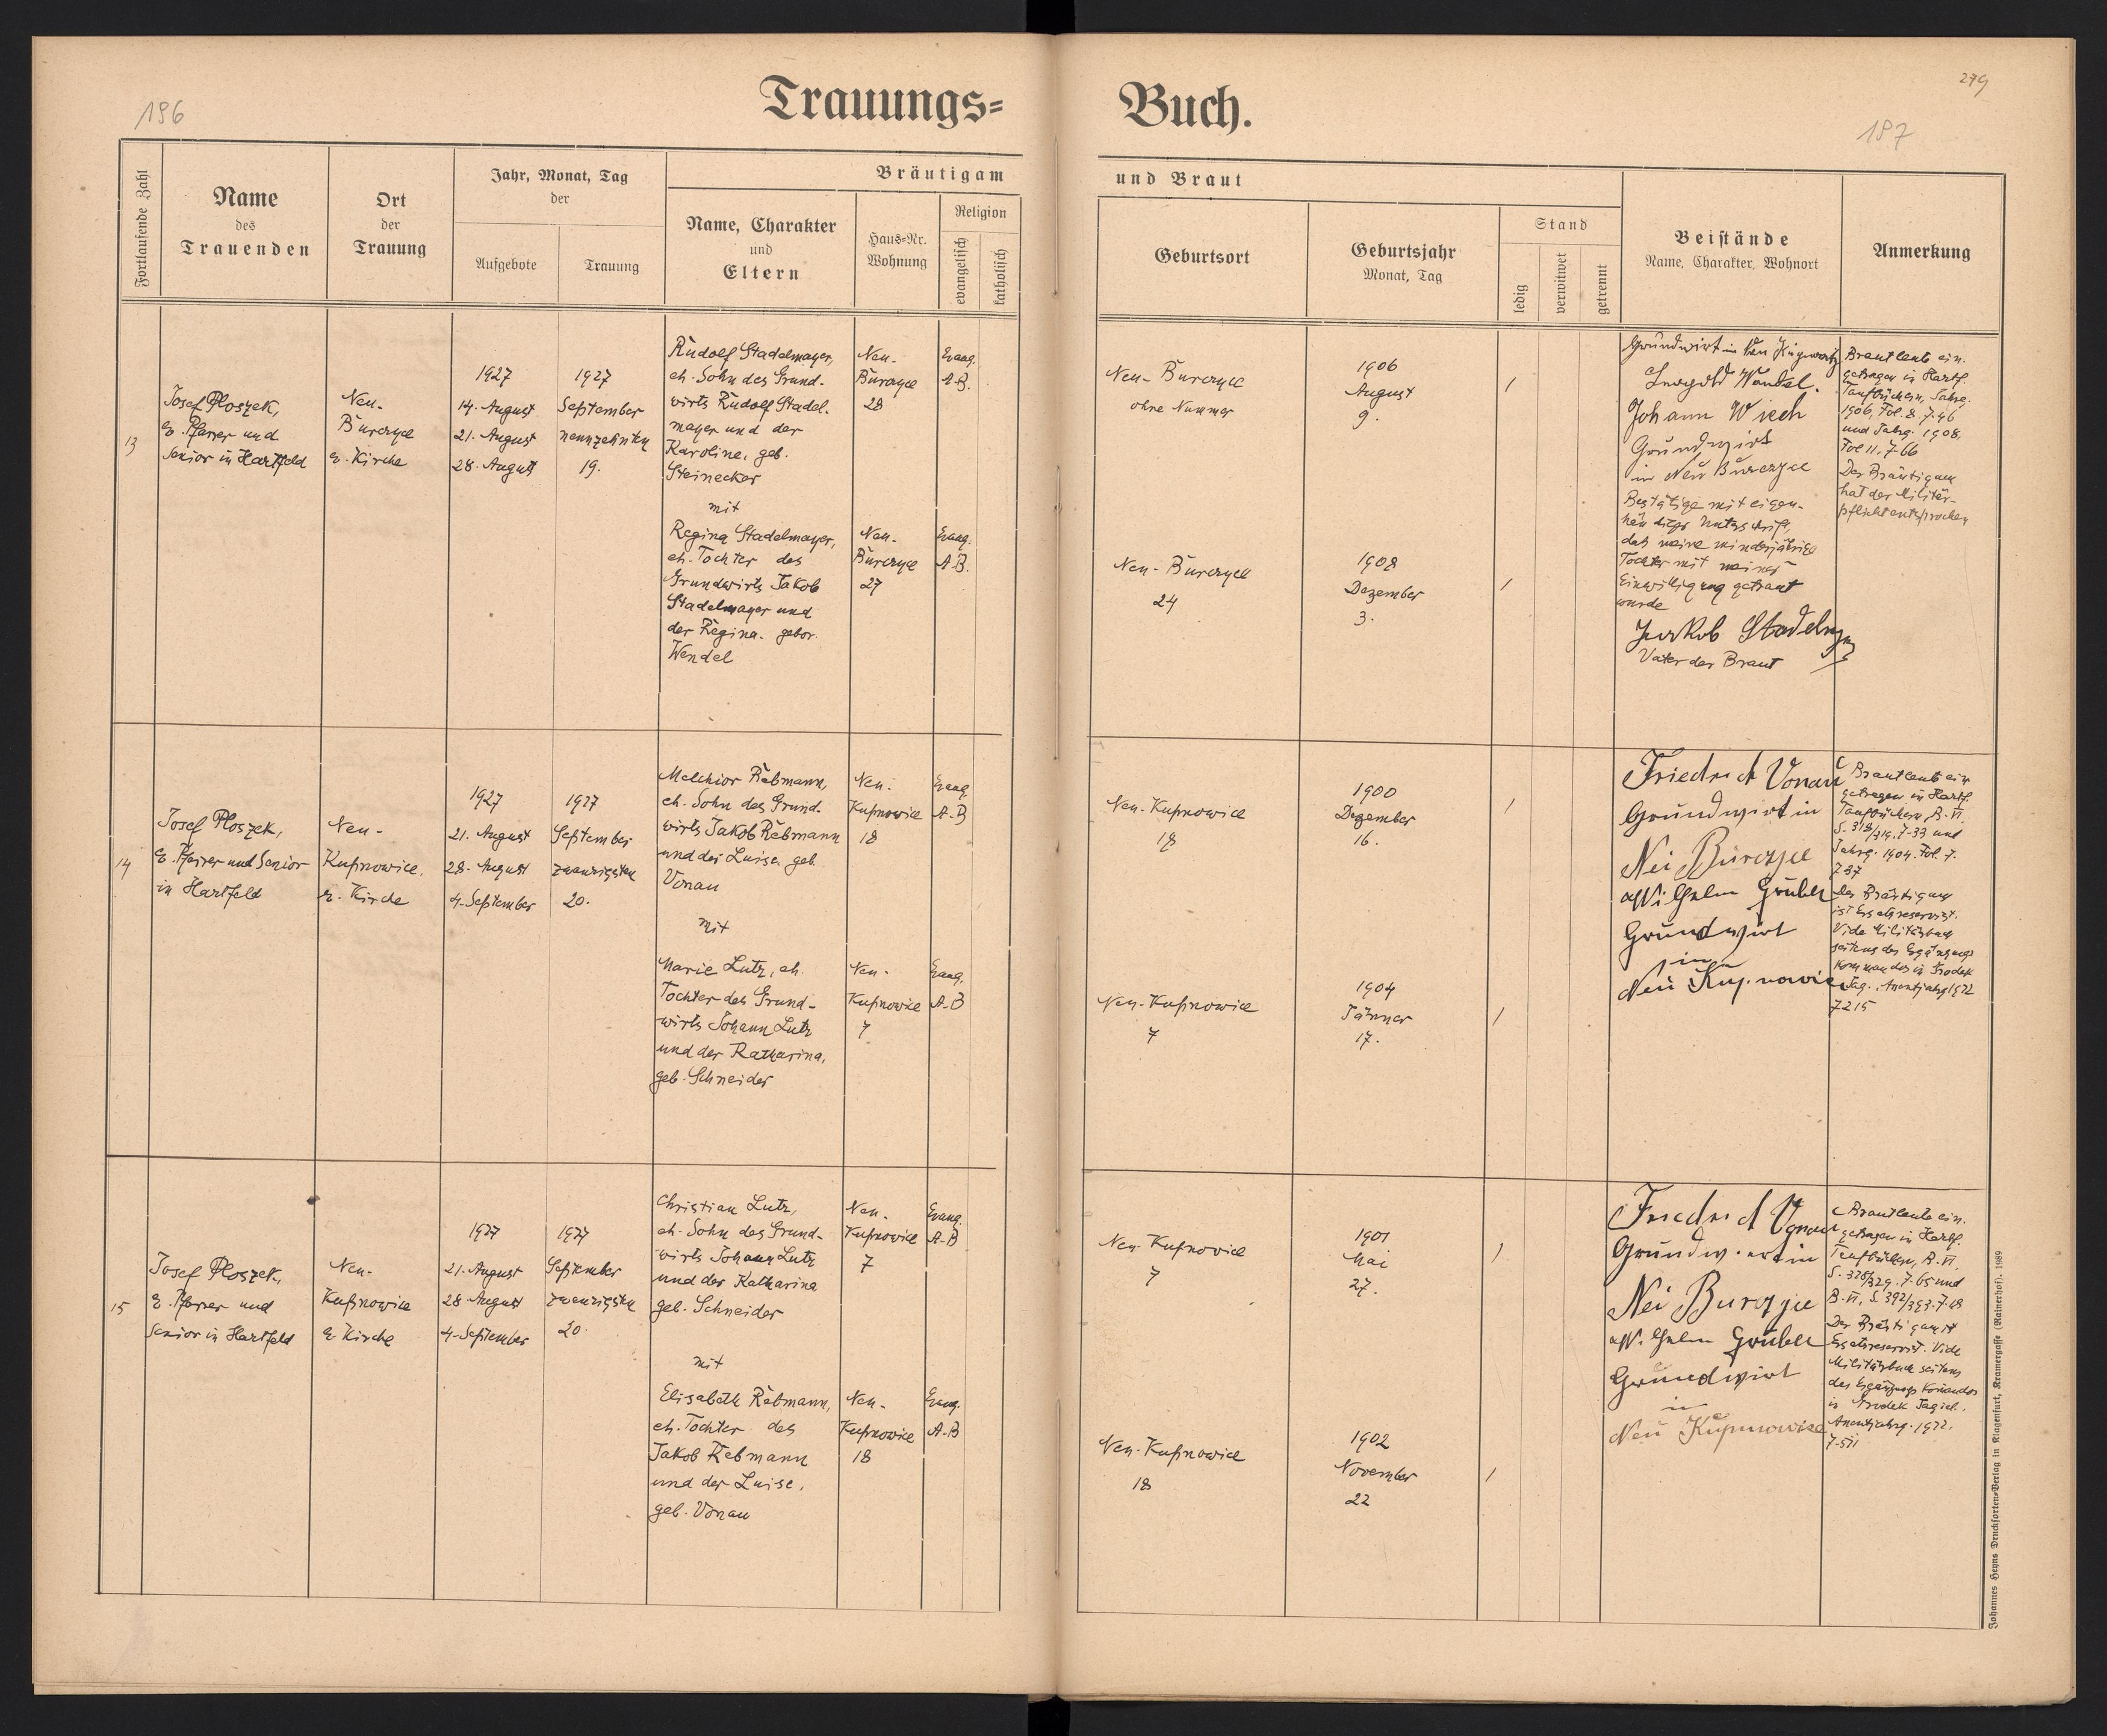 196
Trauungs=
Buch.
279
187
Fortlaufende Zahl
Name
des
Trauenden
Ort
der
Trauung
Jahr, Monat, Tag
der
Aufgebote
Trauung
Bräutigam
Name, Charakter
und
Eltern
Haus-Nr.
Wohnung
Religion
evangelisch
katholisch
und Braut
Geburtsort
Geburtsjahr
Monat, Tag
Stand
ledig
verwitwet
getrennt
Beistände
Name, Charakter, Wohnort
Anmerkung
13
Josef Ploszek,
e. Pfarrer und
Senior in Hartfeld
Neu-
Burczyce
e. Kirche
1927
14. August
21. August
28. August
1927
September
neunzehnten
19.
Rudolf Stadelmayer,
eh. Sohn des Grund-
wirts Rudolf Stadel-
mayer und der
Karoline, geb.
Steinecker
mit
Regina Stadelmayer,
eh. Tochter des
Grundwirts Jakob
Stadelmayer und
der Regina. gebor.
Wendel
Neu-
Burczyce
28
Neu-
Burczyce
27
Evang.
A.B.
Evang.
A.B.
Neu-Burczyce
ohne Nummer
Neu-Burczyce
24
1906
August
9.
1908
Dezember
3.
/
/
Grundwirt in Neu
Leopold Wendel.
Johann Wiech
Grundwirt
in Neu Burczyce
Bestätige mit eigen-
dieser Unterschrift,
daß meine minderjährige
Tochter mit meiner
Einwilligung getraut
wurde
Jakob
Vater der Braut
Brautleute ein-
getragen in Hartf.
Taufbüchern, Jahrg.
1906, Fol. 8. Z. 46
und Jahrg. 1908,
Fol 11, Z. 66
Der Bräutigam
hat der Militär-
pflicht entsprochen
14
Josef Ploszek,
e. Pfarrer und Senior
in Hartfeld
Neu-
Kupnowice.
e. Kirche
1927
21. August
28. August
4. September
1927
September
zwanzigsten
20.
Melchior Rebmann,
eh. Sohn des Grund-
wirts Jakob Rebmann
und der Luise, geb.
Vonau
mit
Marie Lutz, eh.
Tochter des Grund-
wirts Johann Lutz
und der Katharina,
geb. Schneider
Neu-
Kupnowice
18
Neu-
Kupnowice
7
Evang.
A.B
Evang.
A.B
Neu-Kupnowice
18
Neu-Kupnowice
7
1900
Dezember
16.
1904
Jänner
17.
/
/
Friedrich Vonau
Grundwirt in
Nei Burczyce
Wilhelm Gruber
Grundwirt
in
Neu Kupnowice
Brautleute ein
getragen in Hartf.
Taufbüchern, B. VI.
S. 318/319. Z. 33 und
Jahrg. 1904. Fol. 7.
Z 87
Der Bräutigam
ist Ersatzreservist.
Vide Militärbuch
seitens des Ergänzungs
kommandos in Grodek
Jag. Assentjahrg 1922
Z 215
15
Josef Ploszek,
e. Pfarrer und
Senior in Hartfeld
Neu-
Kupnowice
e. Kirche
1927
21. August
28 August
4. September
1927
September
zwanzigsten
20.
Christian Lutz,
eh. Sohn des Grund-
wirts Johann Lutz
und der Katharina
geb. Schneider
mit
Elisabeth Rebmann,
eh. Tochter des
Jakob Rebmann
und der Luise,
geb. Vonau
Neu-
Kupnowice
7
Neu-
Kupnowice
18
Evang.
A.B
Evang.
A.B
Neu-Kupnovice
7
Neu-Kupnowice
18
1901
Mai
27.
1902
November
22
/
/
Friedrich Vonau
Grundwirt in
Nei Burczyce
Wilhelm Gruber
Grundwirt
in
Neu Kupnowice
Brautleute ein-
getragen in Hartf.
Taufbüchern, B. VI,
S. 328/329. Z. 65 und
B. VI, S. 392/393. Z. 48
Der Bräutigam ist
Ersatzreservist. Vide
Militärbuch seitens
des Ergänzungs Komandos
in Grodek Jagiel.
Assentjahrg. 1922.
Z. 511
Johannes Heyns Drucksorten-Verlag in Klagenfurt, Kramergasse (Rainerhof). 1989